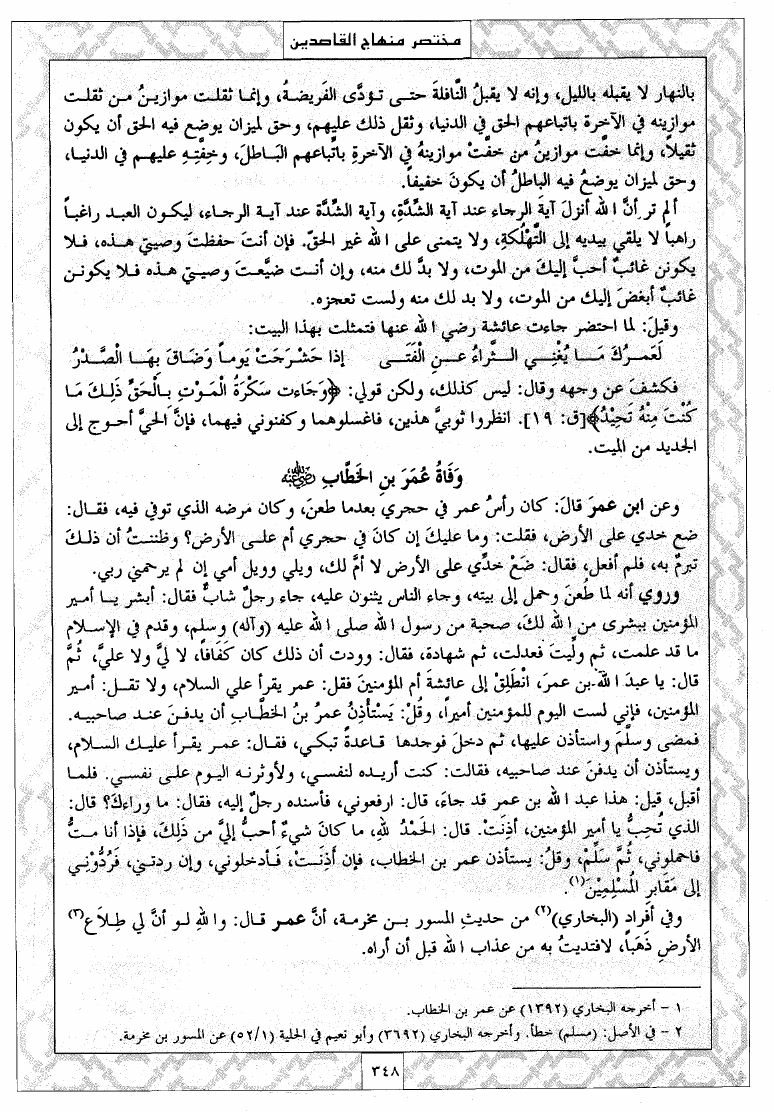 مختصر منهاج القاصدين
بالنهار لا يقبله بالليل، وإنه لا يقبلُ النَّافلةَ حتى تؤدَّى الفَريضةُ، وإنما ثقلت موازينُ من ثقلت
موازينه في الآخرة باتباعهم الحق في الدنيا، وثقل ذلك عليهم، وحق لميزان يوضع فيه الحق أن يكون
ثقيلاً، وإنما خفَّت موازينُ من خفَّتْ موازينهُ في الآخرةِ باتَّباعهم البَاطلَ، وخِفَّتِهِ عليهم في الدنيا،
وحق لميزان يوضعُ فيه الباطلُ أن يكونَ خفيفاً.
ألم تر أنَّ الله أنزلَ آيةَ الرجاء عند آية الشدَّةِ، وآية الشدَّة عند آية الرجاء، ليكون العبد راغباً
راهباً لا يلقي بيديه إلى التَّهْلكةِ، ولا يتمنى على الله غير الحقّ. فإن أنتَ حفظتَ وصيتي هذه، فلا
يكونن غائبٌ أحبَّ إليكَ من الموت، ولا بدَّ لك منه، وإن أنت ضيَّعتَ وصيتي هذه فلا يكونن
غائبٌ أبغضَ إليك من الموت، ولا بد لك منه ولست تعجزه.
وقيلَ: لما احتضر جاءت عائشة رضي الله عنها فتمثلت بهذا البيت:
لَعَمرُكَ مَا يُغْنِي الثَّراءُ عنِ الْفَتَى إذا حَشْرَجَتْ يَوماً وَضَاقَ بِهَا الْصَّدْرُ
فكشفَ عن وجهه وقال: ليس كذلك، ولكن قولي: ﴿وَجَاءت سَكْرَةُ الْمَوْتِ بِالْحَقِّ ذَلِكَ مَا
كُنْتَ مِنْهُ تَحِيْدُ﴾[ق: ١٩]. انظروا ثوبيَّ هذين، فاغسلوهما وكفنوني فيهما، فإنَّ الحيَّ أحوج إلى
الجديد من الميت.
وَفَاةُ عُمَرَ بنِ الخَطَّابِ رضي الله عنه
وعن ابن عمرَ قالَ: كان رأسُ عمر في حجري بعدما طعنَ، وكان مرضه الذي توفي فيه، فقال:
ضع خدي على الأرض، فقلت: وما عليكَ إن كانَ في حجري أم على الأرض؟ وظننتُ أن ذلكَ
تبرمٌ به، فلم أفعل، فقال: ضَعْ خدِّي على الأرض لا أمَّ لك، ويلي وويل أمي إن لم يرحمني ربي.
وروي أنه لما طُعنَ وحمل إلى بيته، وجاء الناس يثنون عليه، جاء رجلٌ شابٌّ فقال: أبشر يا أمير
المؤمنين ببشرى من الله لكَ، صحبة من رسول الله صلى الله عليه (وآله) وسلم، وقدم في الإسلام
ما قد علمت، ثم ولِّيتَ فعدلت، ثم شهادة، فقال: وودت أن ذلك كان كَفَافَاً، لا ليَّ ولا عليَّ، ثُمَّ
قال: يا عبدَ الله بن عمرَ، انْطَلِقْ إلى عائشةَ أم المؤمنينَ فقل: عمر يقرأ علي السلام، ولا تقل: أمير
المؤمنين، فإني لست اليوم للمؤمنين أميراً، وقلْ: يَسْتَأْذِنُ عمرُ بنُ الخَطَّابِ أن يدفنَ عند صاحبيه.
فمضى وسلَّم واستأذن عليها، ثم دخلَ فوجدها قاعدةً تبكي، فقال: عمر يقرأ عليك السلام،
ويستأذن أن يدفنَ عند صاحبيه، فقالت: كنت أريده لنفسي، ولأوثرنه اليوم على نفسي. فلما
أقبل، قيل: هذا عبد الله بن عمر قد جاءَ، قال: ارفعوني، فأسنده رجلٌ إليه، فقال: ما وراءكَ؟ قال:
الذي تُحِبُّ يا أمير المؤمنين، أذِنَتْ. قال: الحَمْدُ للهِ، ما كانَ شيءٌ أحبُّ إليَّ من ذَلِكَ، فإذا أنا متُّ
فاحملوني، ثُمَّ سَلِّمْ، وقلُ: يستأذن عمر بن الخطاب، فإن أَذِنَتْ، فَأدخلوني، وإن ردتني، فَرُدُّوْنِي
إلى مَقَابرِ المُسْلِمِيْنَ(١).
وفي أفراد (البخاري)(٢) من حديثِ المسور بن مخرمة، أنَّ عمر قال: واللهِ لو أنَّ لي طِلاَع(٣)
الأرضِ ذَهَباً، لافتديتُ به من عذاب الله قبل أن أراه.
١ - أخرجه البخاري (١٣٩٢) عن عمر بن الخطاب.
٢ - في الأصل: (مسلم) خطأ. وأخرجه البخاري (٣٦٩٢) وأبو نعيم في الحلية (٥٢/١) عن المسور بن مخرمة.
٣٤٨